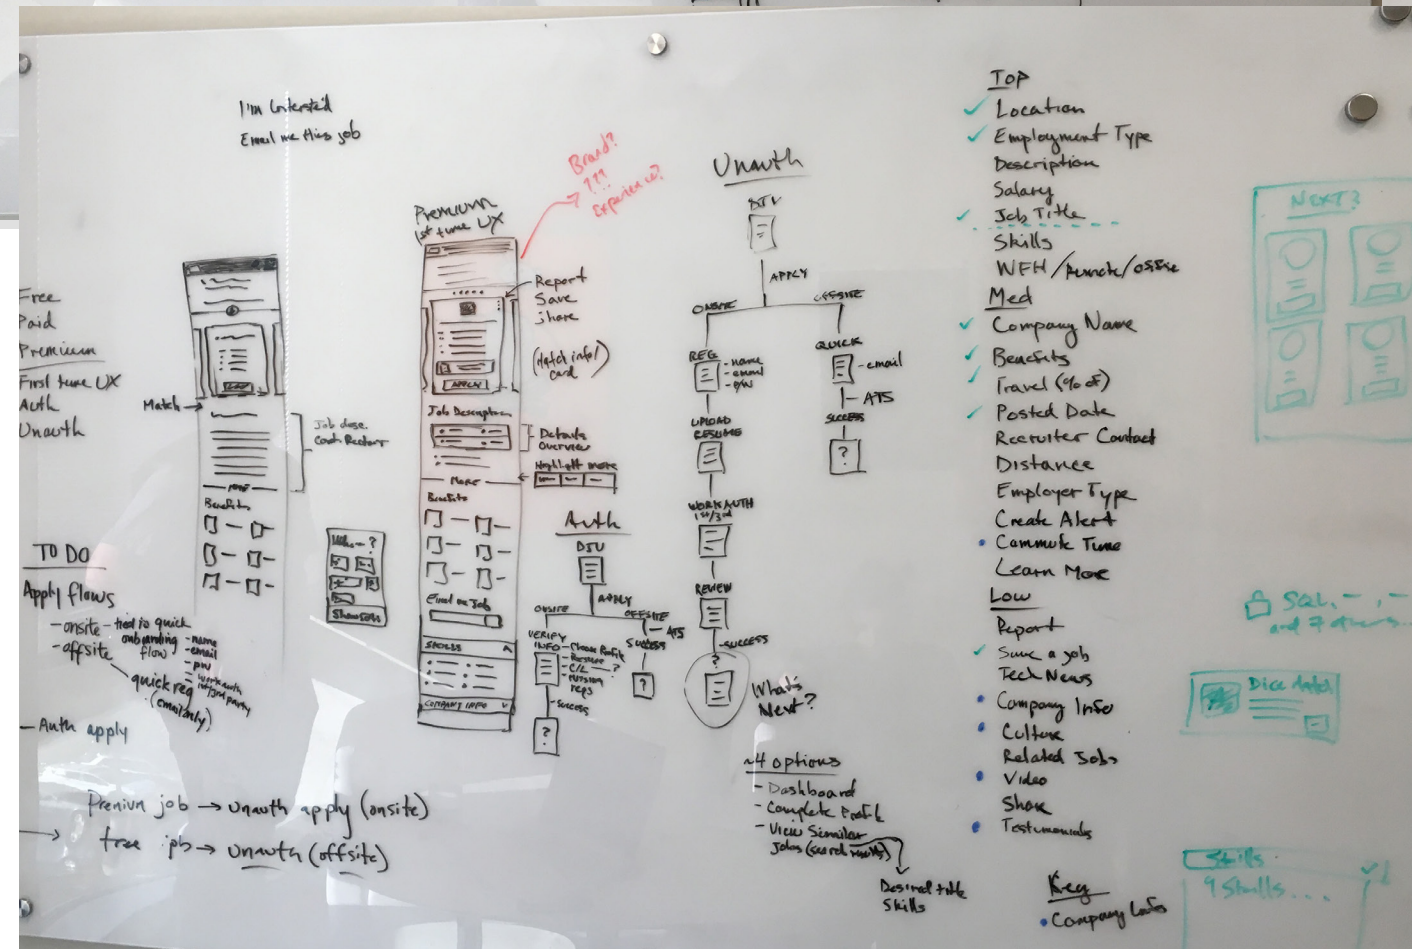 I'm Interested
Email me this job
Free
Paid
Premium
First time UX
Auth
Unauth
Match
Job desc.
MORE
Benefits
TO DO
Apply flows
- onsite - tied to quick
onboarding
flow
- name
- email
- pw
- work auth
1st/3rd party
- offsite
quick reg
(email only)
- Auth apply
Premium job → Unauth apply (onsite)
free job → Unauth (offsite)
Who - ?
Show Jobs
Premium
1st time UX
Brand?
???
Experience?
Report
Save
Share
(Match info/
card)
APPLY
Job Description
Details
Overview
Highlight more
MORE
Benefits
Email me Job
SKILLS
COMPANY INFO
Auth
DJV
APPLY
ONSITE
OFFSITE
VERIFY
INFO
- Choose Profile
- Resume
- C/L ?
- mission
reqs
- ATS
SUCCESS
?
- SUCCESS
?
Unauth
DJV
APPLY
ONSITE
OFFSITE
REG
- name
- email
- p/w
QUICK
- email
- ATS
SUCCESS
?
UPLOAD
RESUME
WORK AUTH
1st/3rd
REVIEW
- SUCCESS
?
What's
Next?
~4 options
- Dashboard
- Complete Profile
- View Similar
Jobs (search results)
Desired title
Skills
Top
✓ Location
✓ Employment Type
Description
Salary
✓ Job Title
Skills
WFH/remote/offsite
Med
✓ Company Name
✓ Benefits
✓ Travel (% of)
✓ Posted Date
Recruiter Contact
Distance
Employer Type
Create Alert
• Commute Time
Learn More
Low
Report
✓ Save a job
Tech News
• Company Info
• Culture
Related Jobs
• Video
Share
• Testimonials
Key
• Company
NEXT?
SQL, -, -
and 7 others...
Dice
Skills
9 Skills...